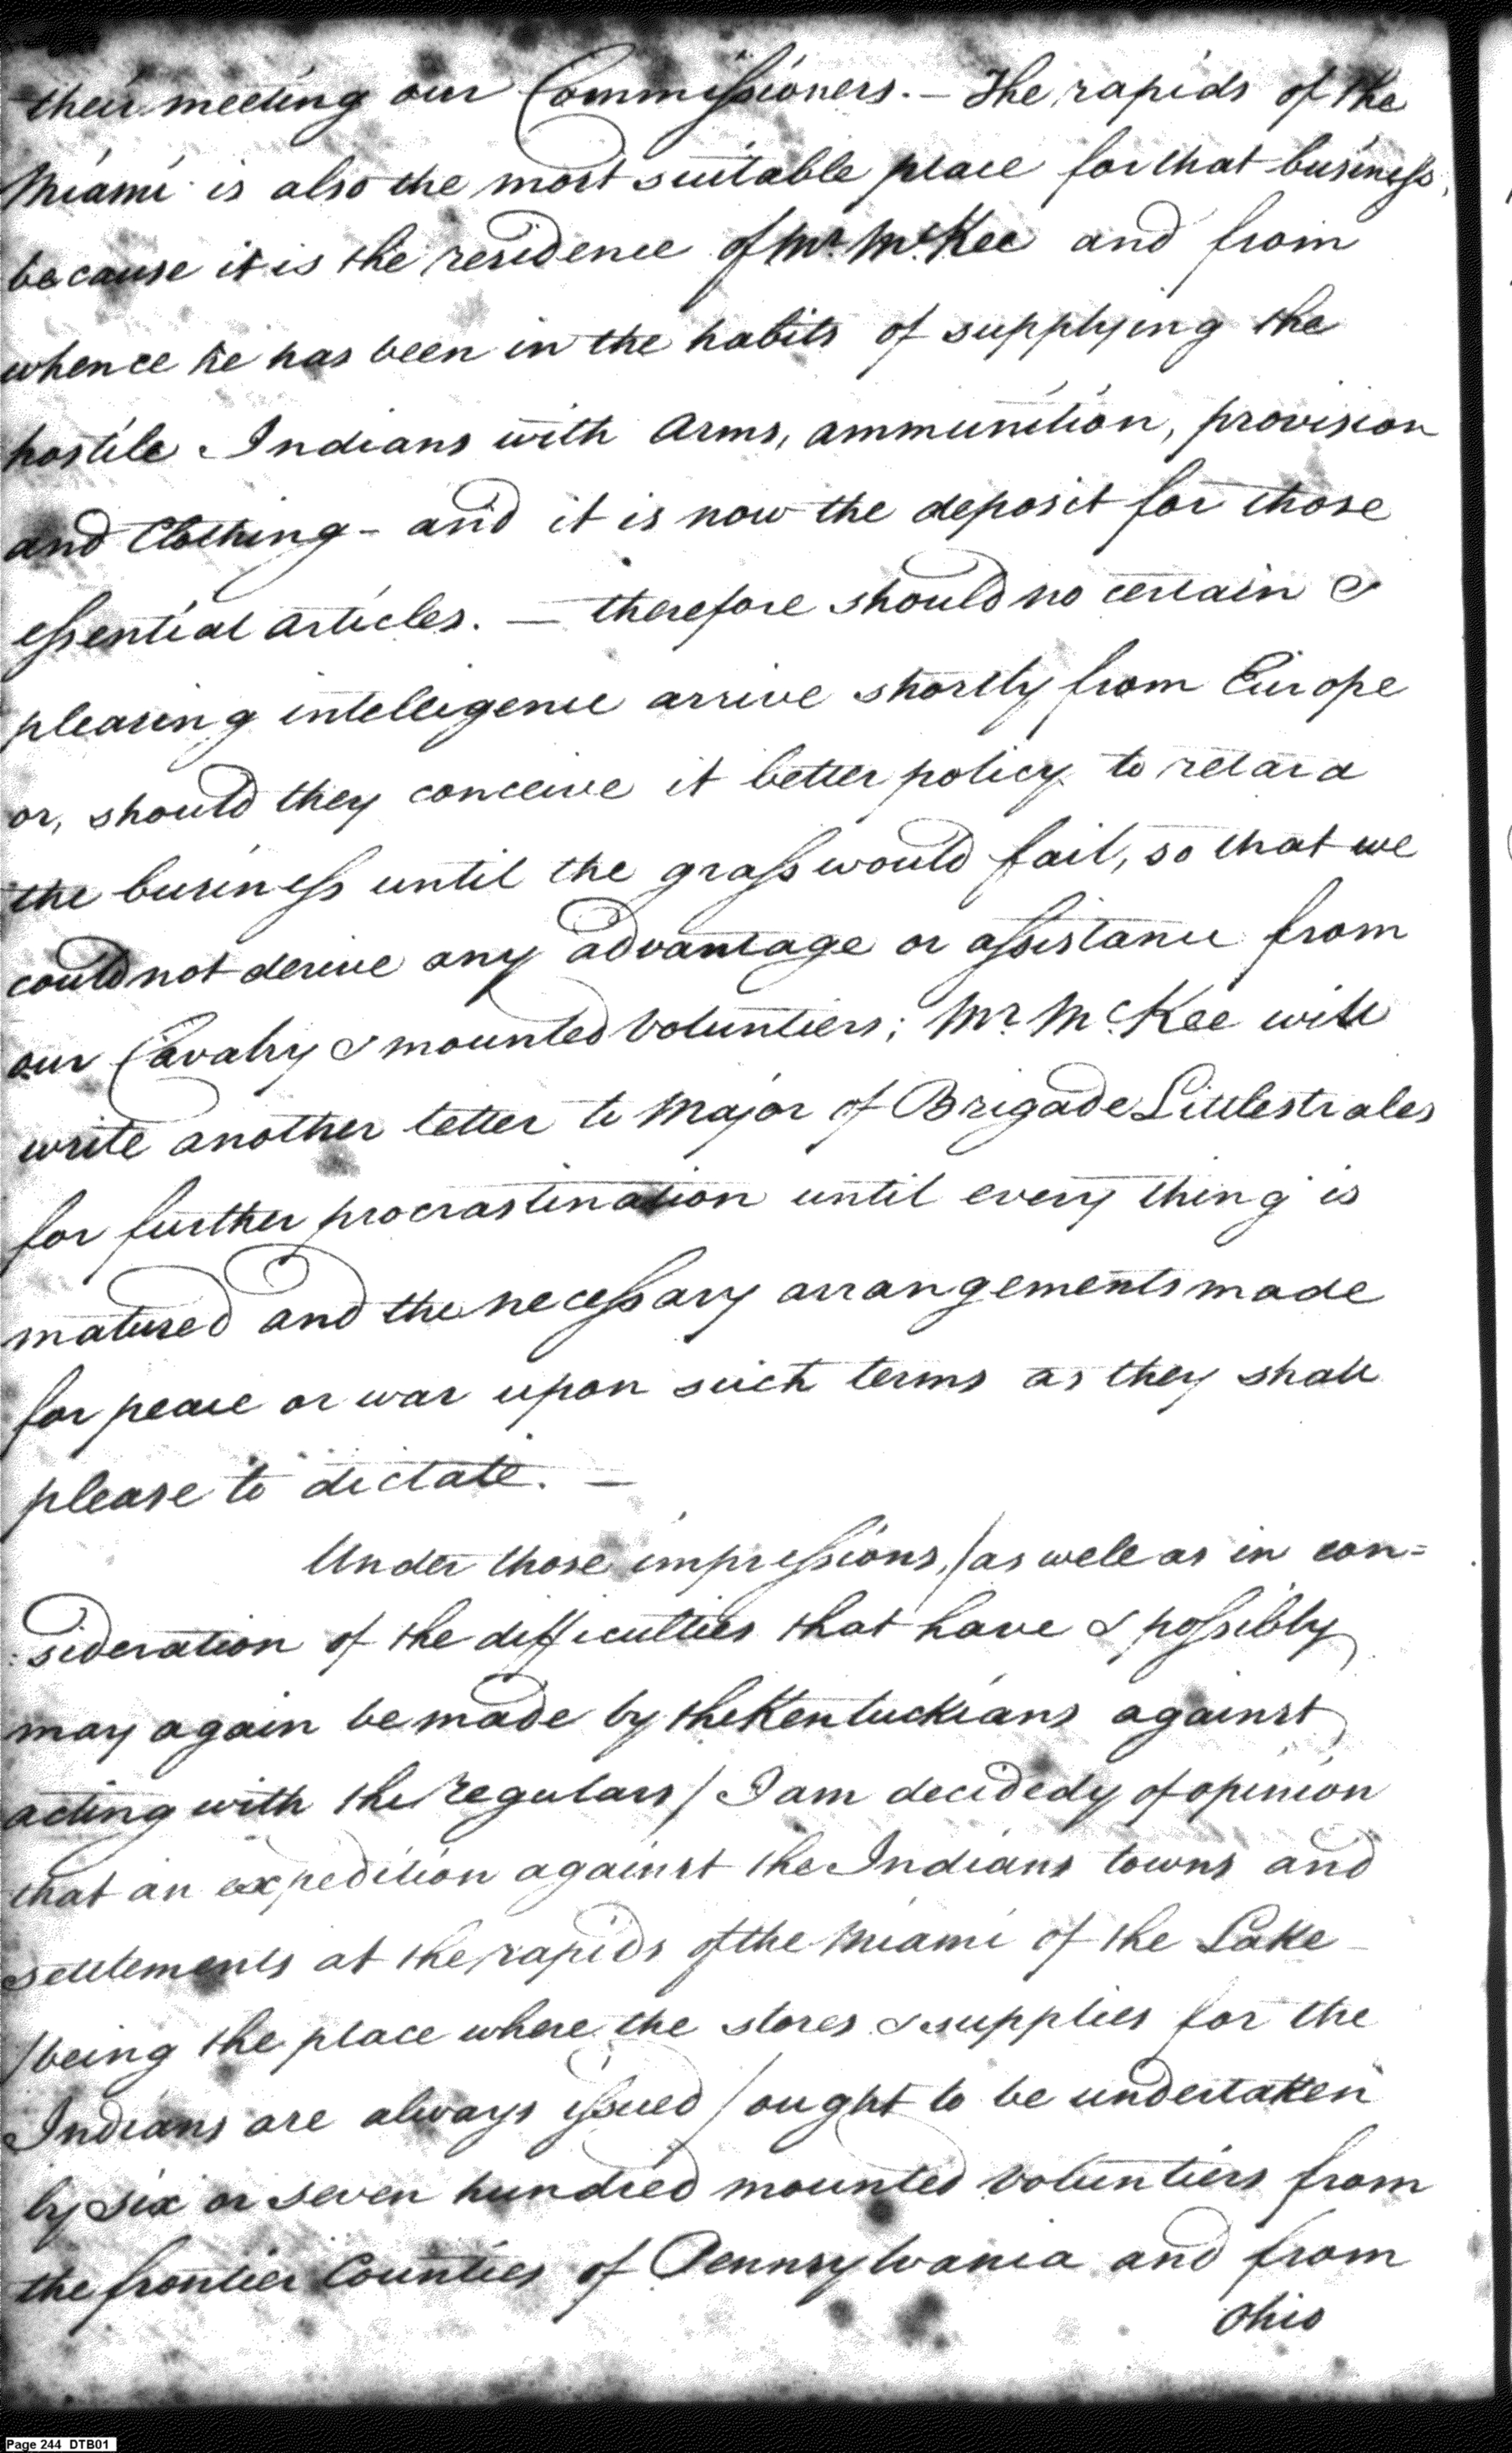 their meeting our Commissioners. — The rapids of the
Miami is also the most suitable place for that business,
because it is the residence of Mr. McKee and from
whence he has been in the habits of supplying the
hostile Indians with Arms, ammunition, provision
and Clothing - and it is now the deposit for those
essential articles. — therefore should no certain &
pleasing intelligence arrive shortly from Europe
or, should they conceive it better policy to retard
the business until the grass would fail, so that we
could not derive any advantage or assistance from
our Cavalry & mounted Voluntiers; Mr. McKee will
write another letter to Major of Brigade Littlestrales
for further procrastination until every thing is
matured and the necessary arrangements made
for peace or war upon such terms as they shall
please to dictate. —
Under those impressions, /as well as in con=
:sideration of the difficulties that have & possibly
may again be made by the Kentuckians against
acting with the regulars/ I am decidedy of opinion
that an expedition against the Indians towns and
settlements at the rapids of the Miami of the Lake
/being the place where the stores & supplies for the
Indians are always issued/ ought to be undertaken
by six or seven hundred mounted Voluntiers from
the frontier Counties of Pennsylvania and from
Ohio
Page 244 DTB01